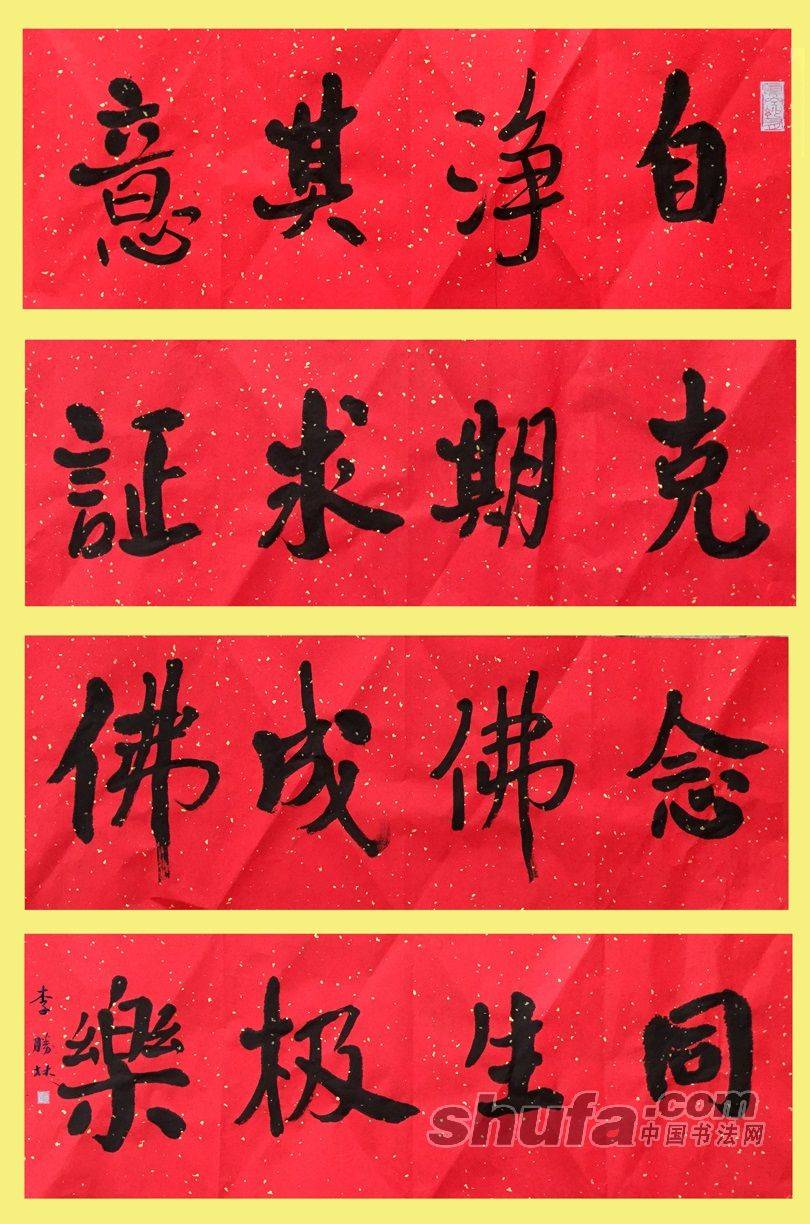 自净其意
克期求証
念佛成佛
同生极樂
李勝林
shufa.com
中国书法网